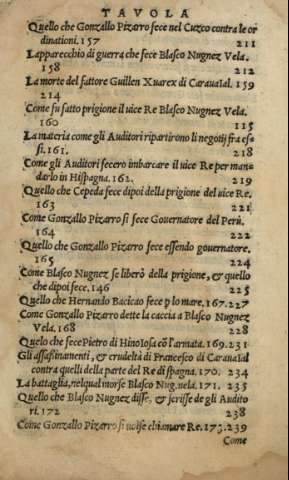 TAVOLA
Quello che Gonzallo Pizarro fece nel Cuzco contra le or
dinationi. 157 211
L'apparecchio di guerra che fece Blasco Nugnez Vela.
158 212
La morte del fattore Guillen Xuarex di Carauaial. 159
214
Come fu fatto prigione il uice Re Blasco Nugnez Vela.
160 115
La materia come gli Auditori ripartirono li negotij fra es
si. 161. 218
Come gli Auditori fecero imbarcare il uice Re per man
darlo in Hispagna. 162. 219
Quello che Cepeda fece dipoi della prigione del uice Re.
163 221
Come Gonzallo Pizarro si fece Gouernatore del Perù.
164 222
Quello che Gonzallo Pizarro fece essendo gouernatore.
165 224
Come Blasco Nugnez se liberò della prigione, & quello
che dipoi fece. 146 225
Quello che Hernando Bacicao fece p lo mare. 167. 227
Come Gonzallo Pizarro dette la caccia a Blasco Nugnez
Vela. 168 228
Quelo che fece Pietro di Hinoiosa cõ l'armata. 169. 231
Gli assassinamenti, & crudeltà di Francesco di Carauaial
contra quelli della parte del Re di spagna. 170. 234
La battaglia, nel qual morse Blasco Nug. uela. 171. 235
Quello che Blasco Nugnez disse, & scrisse de gli Audito
ri. 172 238
Come Gonzallo Pizarro si uolse chiamare Re. 173. 239
Come